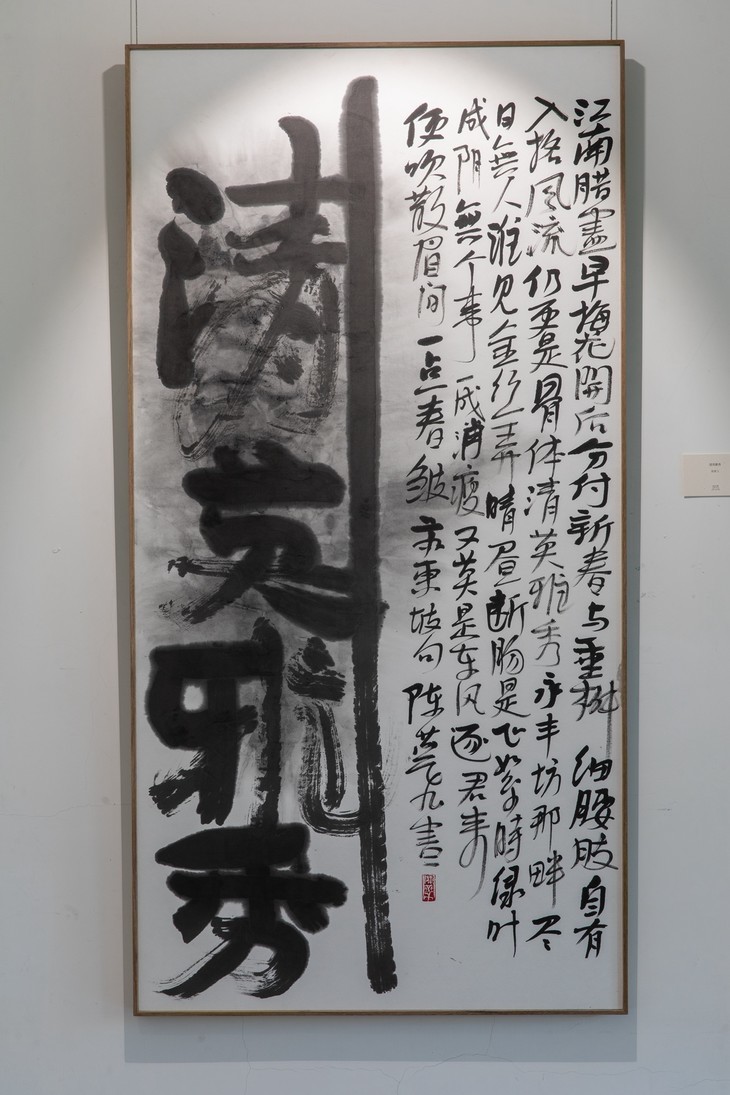 江南腊盡早梅花開后分付新春与垂柳细腰肢自有
入格风流仍更是骨体清英雅秀永丰坊那畔尽
日無人谁见金丝弄晴昼断肠是飞絮時绿叶
成阴無个事一成消瘦又莫是东风逐君来
便吹散眉间一点春皱東坡句陈九書
清英雅秀